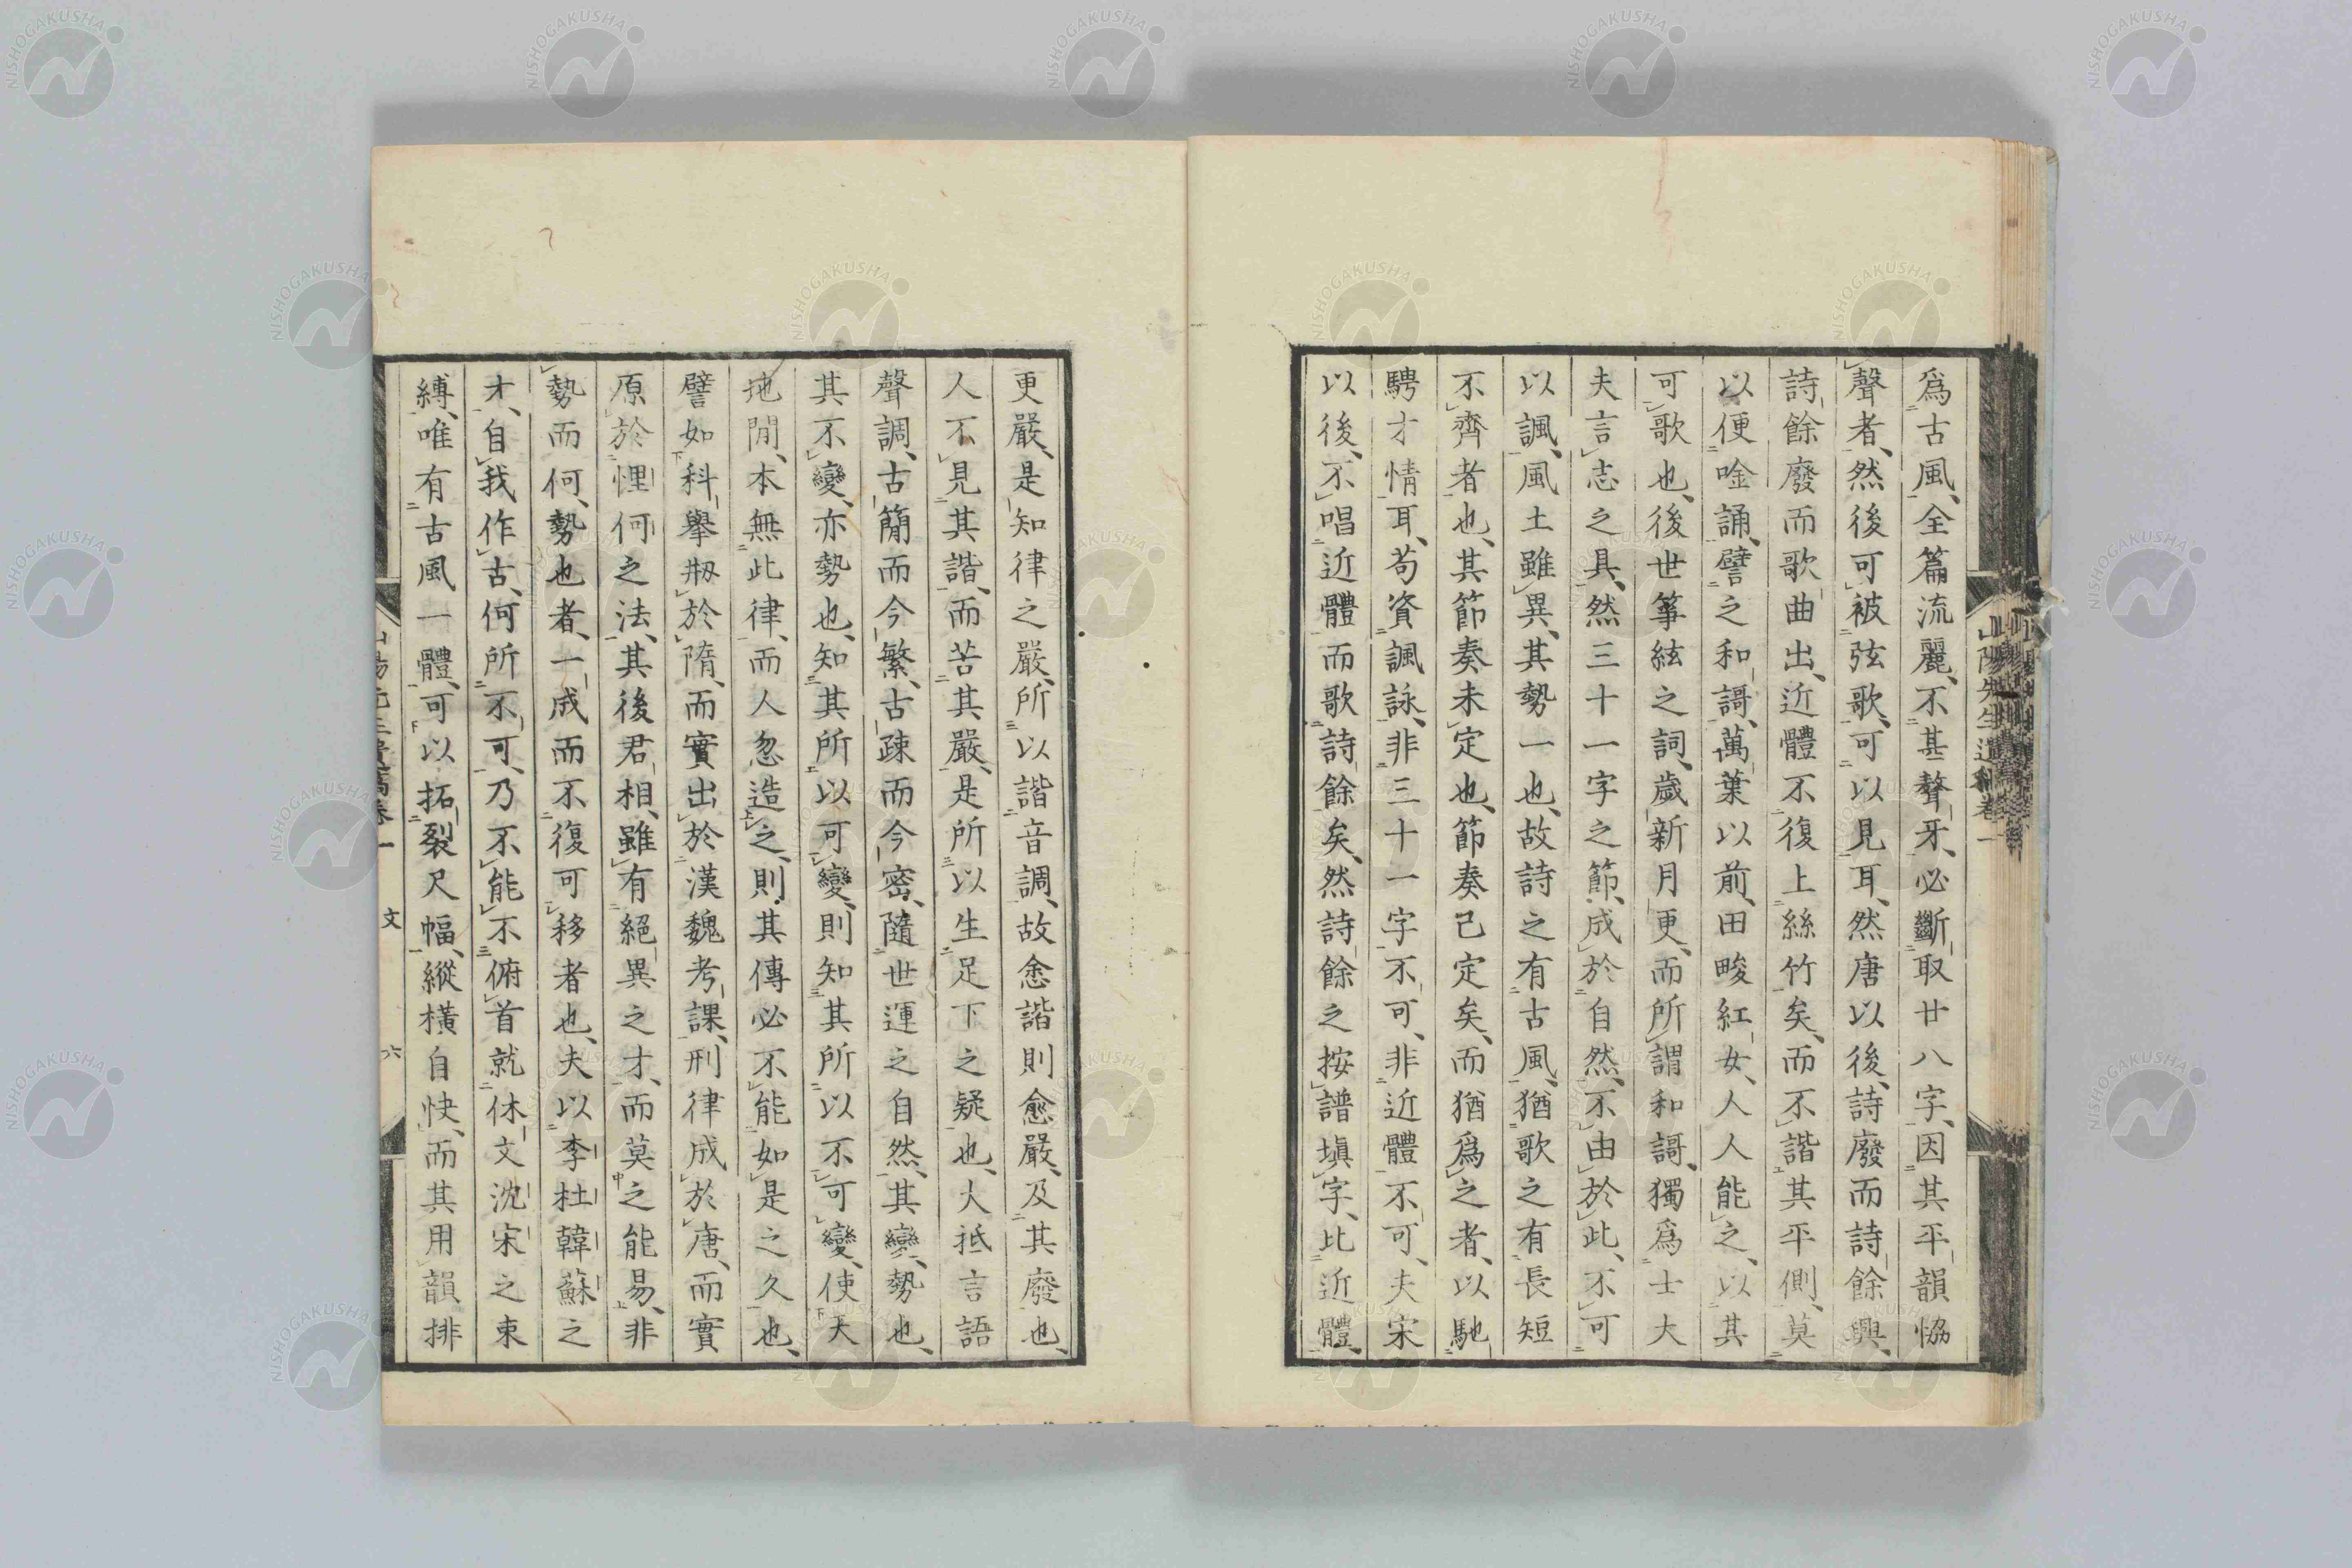 爲古風、全篇流麗、不甚聱牙、必斷取廿八字、因其平韻恊
聲者、然後可被弦歌、可以見耳、然唐以後、詩廢而詩餘興、
詩餘廢而歌曲出、近體不復上絲竹矣、而不諧其平側、莫
以便唫誦、譬之和謌、萬葉以前、田畯紅女、人人能之、以其
可歌也、後世箏絃之詞、歲新月更、而所謂和謌、獨爲士大
夫言志之具、然三十一字之節、成於自然、不由於此、不可
以諷、風土雖異、其勢一也、故詩之有古風、猶歌之有長短
不齊者也、其節奏未定也、節奏已定矣、而猶爲之者、以馳
騁才情耳、苟資諷詠、非三十一字不可、非近體不可、夫宋
以後、不唱近體而歌詩餘矣、然詩餘之按譜塡字、比近體、
更嚴、是知律之嚴、所以諧音調、故愈諧則愈嚴、及其廢也、
人不見其諧、而苦其嚴、是所以生足下之疑也、大抵言語
聲調、古簡而今繁、古疎而今密、隨世運之自然、其變、勢也、
其不變、亦勢也、知其所以可變、則知其所以不可變、使天
地閒、本無此律、而人忽造之、則其傳必不能如是之久也、
譬如科擧剏於隋、而實出於漢魏考課、刑律成於唐、而實
原於悝何之法、其後君相、雖有絕異之才、而莫之能易、非
勢而何、勢也者、一成而不復可移者也、夫以李杜韓蘇之
才、自我作古、何所不可、乃不能不俯首就休文沈宋之束
縛、唯有古風一體、可以拓裂尺幅、縱橫自快、而其用韻排
山陽先生遺稿卷一
文
六